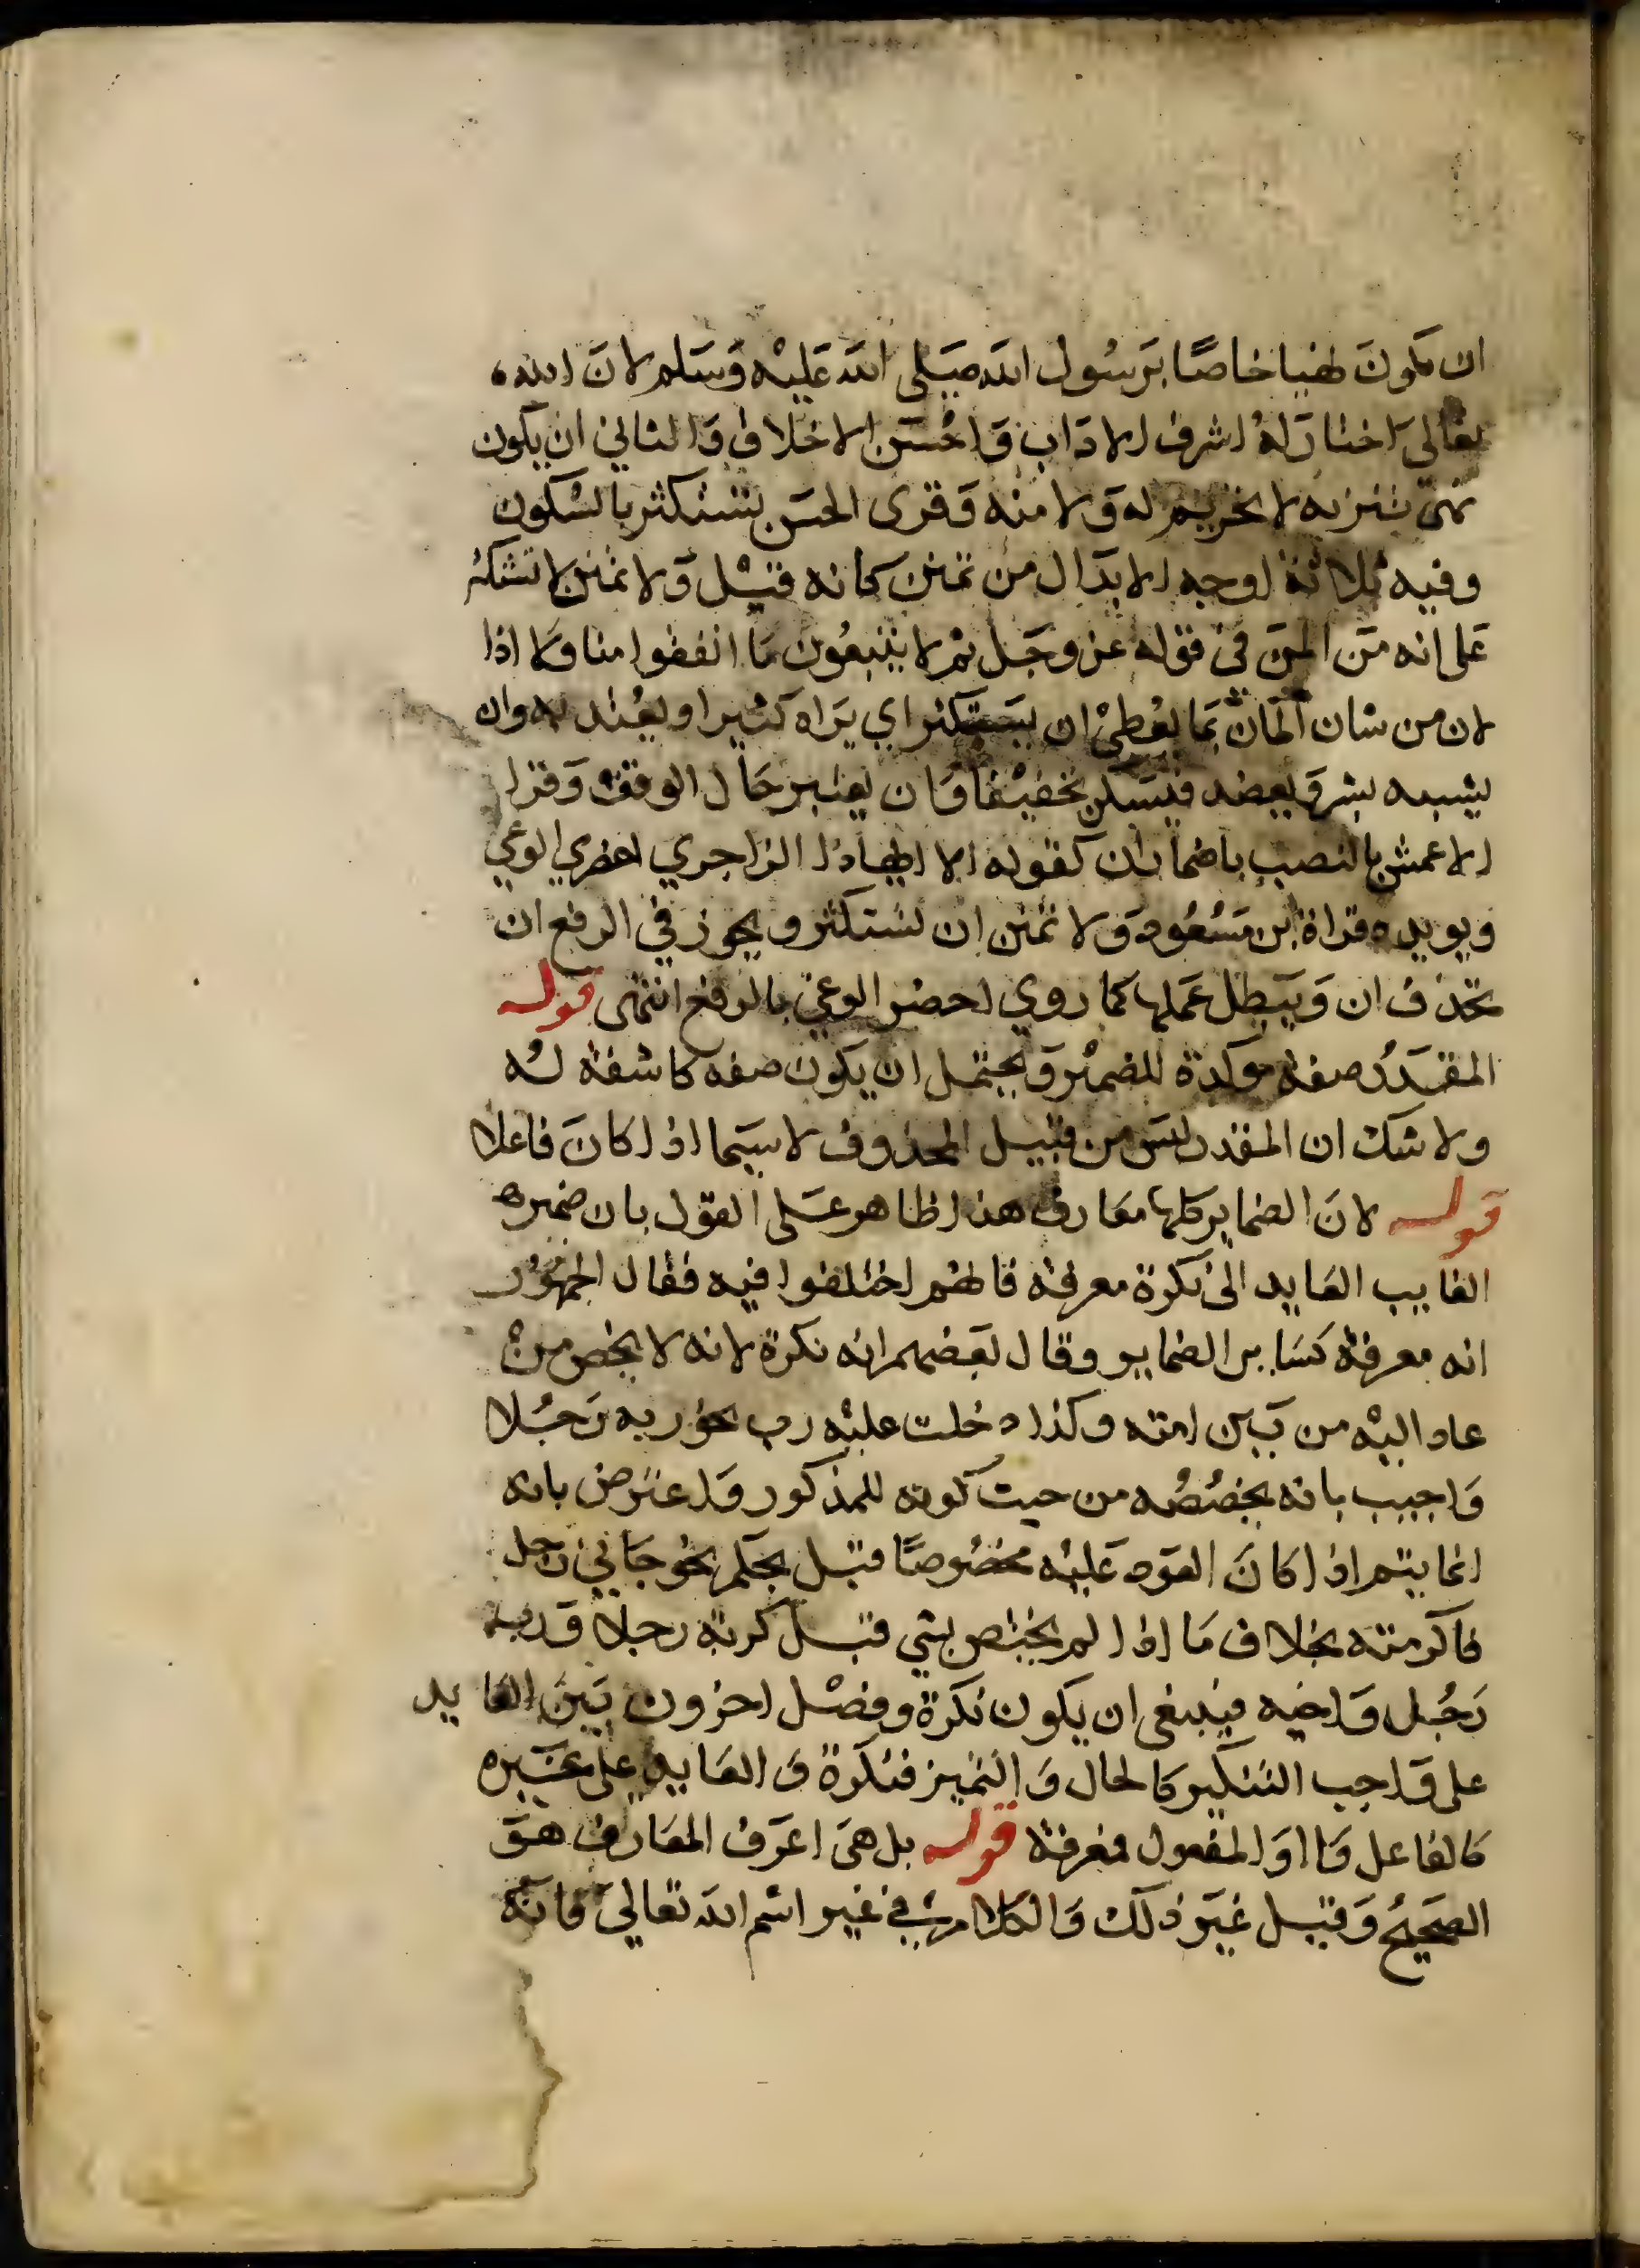 ان يكون نهيا خاصًا برَسُول الله صَلى الله عَليْه وَسَلم لانَ الله
تعالى اختار لهُ اشرف الادَاب وَاحْسَن الاخلاق وَالثاني ان يكون
نهى تنزيه لا تحريم له وَلامته وَقرى الحسَن تستكثر بالسُكون
وفيه ثلاثة اوجه الابدَال من تمنن كانه قيْل وَلا تمنن لا تستكثر
عَلى انه مَن المنَ في قوله عز وجَل ثم لا يتبعُون مَا انفقوا منا وَلا اذا
لان من شان المَانّ بمَا يُعْطيْ ان يَستكثر اي يَراه كثيرا ويعُتد به وان
يشبه بشر وَبعضد فيسَكن تخفيْفا وَان يعتبر حَال الوقف وَقرا
الاعمش بالنصب باضمار ان كقوله الا ايهاذا الزاجري احضر الوغي
ويويده قراة ابن مَسْعُود وَلا تمنن ان تستكثر ويجوز في الرفع ان
تحذف ان وَيَبطل عَملها كما روي احضر الوغى بالرفع انتهى قوله
المقدَرُ صفة موكدة للضميْر وَيحتمل ان يكون صفه كاشفة لهُ
ولا شك ان المقدر ليسَ من قبيل المحذوف لا سيَما اذا كانَ فاعلا
قوله لانَ الضماير كلها معَارف هذا ظاهر عَلى القول بان ضميره
الغايب العَايد الى نكرة معرفة فانهم اختلفوا فيه فقال الجمهُوْر
انه معرفة كسَاير الضماير وقال بعَضهم انه نكرة لانه لا يخص منْ
عاد اليْه من بَين امته وكذا دخلت عليْه رب نحو ربه رَجُلا
وَاجيب بانه يخصُصُه من حيث كونه للمذكور وَاعترض بانه
انما يتم اذا كانَ العَود عَليْه مخصُوصًا قبل بحكم نحو جَاني رَجل
فاكرمته بخلاف مَا اذا لم يختص بشي قبل كربه رجلا وَرب
رَجُل وَاخيه فينبغى ان يكون نكرة وفصْل اخرون بَيْنَ العَايد
على وَاجب التنكير كالحال وَالتمييز فنكرة وَالعَايد على غيره
كالفاعل وَالمفعول فمعرفة قوله بل هىَ اعرَف المعَارف هوَ
الصَحيح وَقيل غيَر ذلك وَالكلام في غير اسْم الله تعالي فانَّهُ